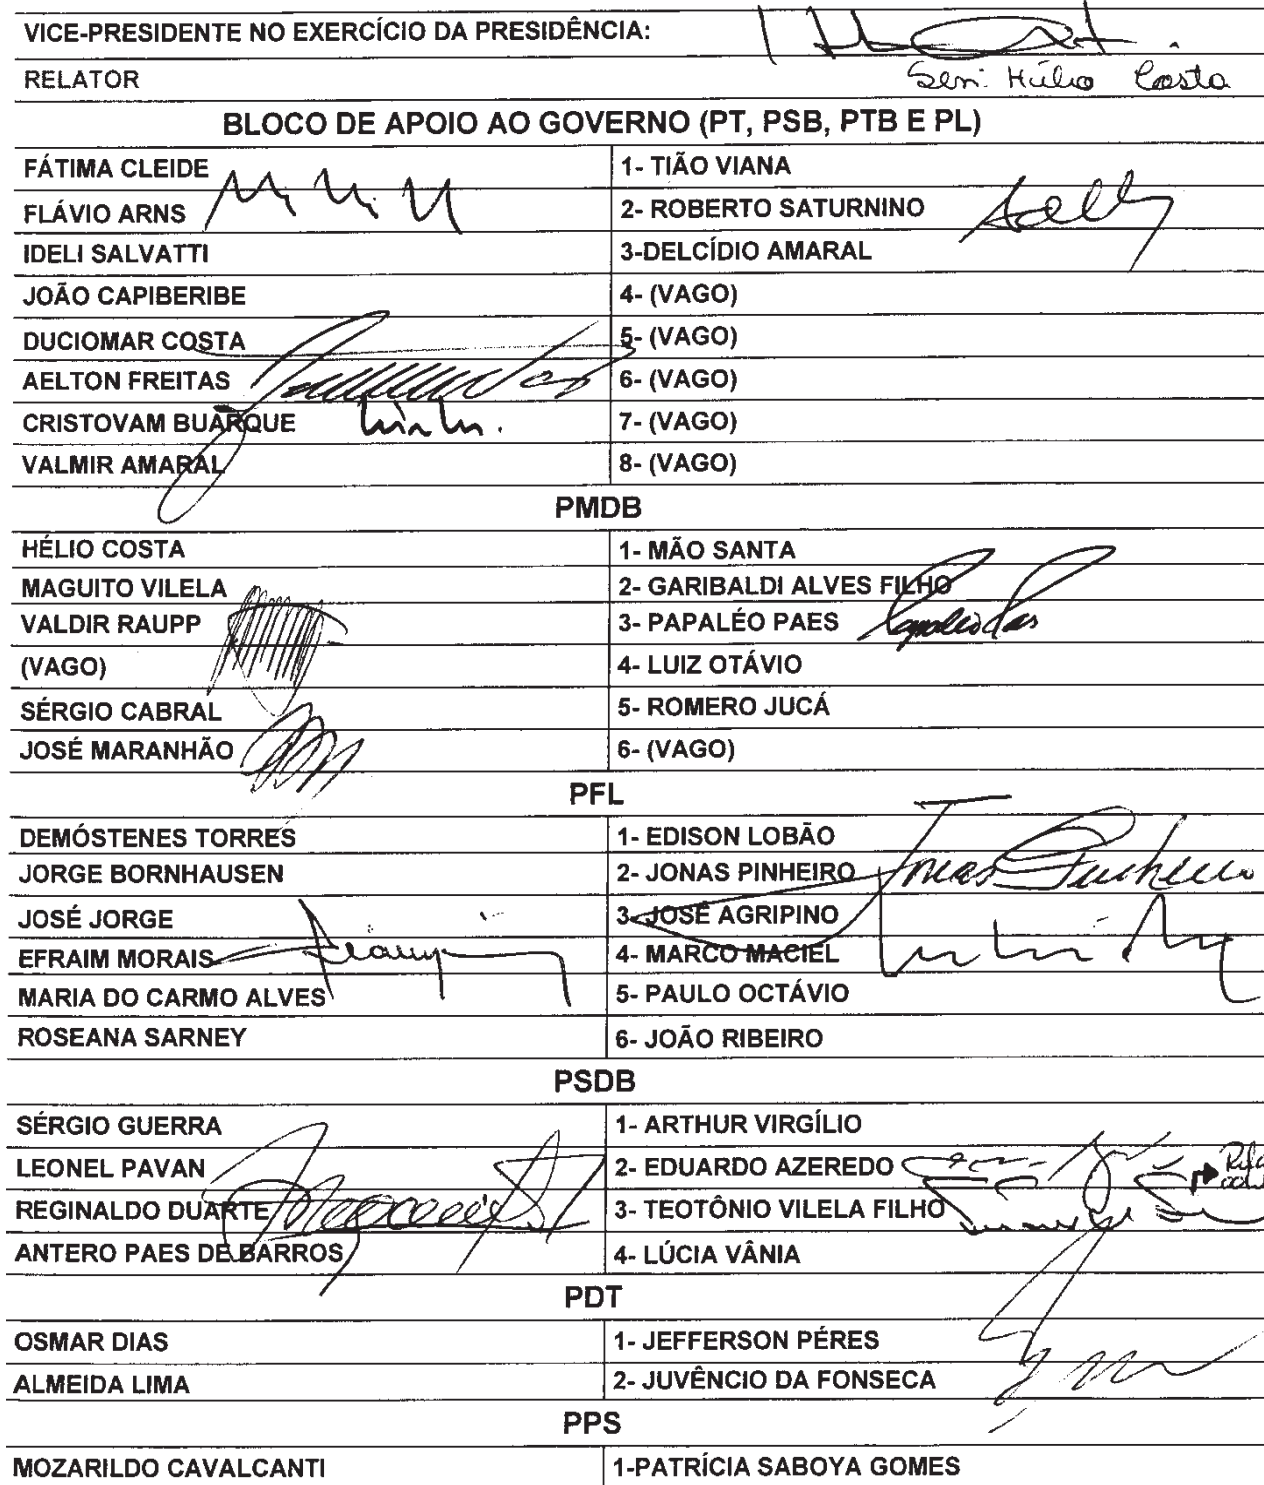 VICE-PRESIDENTE NO EXERCÍCIO DA PRESIDÊNCIA:
RELATOR Sen. Hélio Costa
BLOCO DE APOIO AO GOVERNO (PT, PSB, PTB E PL)
FÁTIMA CLEIDE 1- TIÃO VIANA
FLÁVIO ARNS 2- ROBERTO SATURNINO
IDELI SALVATTI 3-DELCÍDIO AMARAL
JOÃO CAPIBERIBE 4- (VAGO)
DUCIOMAR COSTA 5- (VAGO)
AELTON FREITAS 6- (VAGO)
CRISTOVAM BUARQUE 7- (VAGO)
VALMIR AMARAL 8- (VAGO)
PMDB
HÉLIO COSTA 1- MÃO SANTA
MAGUITO VILELA 2- GARIBALDI ALVES FILHO
VALDIR RAUPP 3- PAPALÉO PAES
(VAGO) 4- LUIZ OTÁVIO
SÉRGIO CABRAL 5- ROMERO JUCÁ
JOSÉ MARANHÃO 6- (VAGO)
PFL
DEMÓSTENES TORRES 1- EDISON LOBÃO
JORGE BORNHAUSEN 2- JONAS PINHEIRO Jonas Pinheiro
JOSÉ JORGE 3- JOSÉ AGRIPINO
EFRAIM MORAIS 4- MARCO MACIEL
MARIA DO CARMO ALVES 5- PAULO OCTÁVIO
ROSEANA SARNEY 6- JOÃO RIBEIRO
PSDB
SÉRGIO GUERRA 1- ARTHUR VIRGÍLIO
LEONEL PAVAN 2- EDUARDO AZEREDO
REGINALDO DUARTE 3- TEOTÔNIO VILELA FILHO
ANTERO PAES DE BARROS 4- LÚCIA VÂNIA
PDT
OSMAR DIAS 1- JEFFERSON PÉRES
ALMEIDA LIMA 2- JUVÊNCIO DA FONSECA
PPS
MOZARILDO CAVALCANTI 1-PATRÍCIA SABOYA GOMES